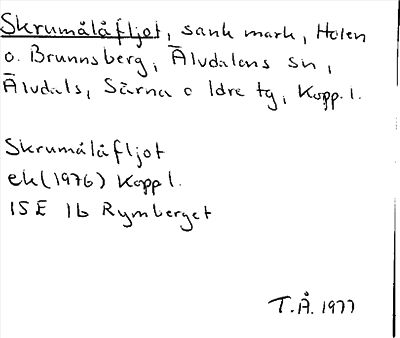 Skrumålåfljot, sank mark, Holen
o. Brunnsberg, Älvdalens sn,
Älvdals, Särna o Idre tg, Kopp. l.
Skrumålåfljot
ek (1976) Kopp l.
15E 1b Rymberget
T.Å. 1977